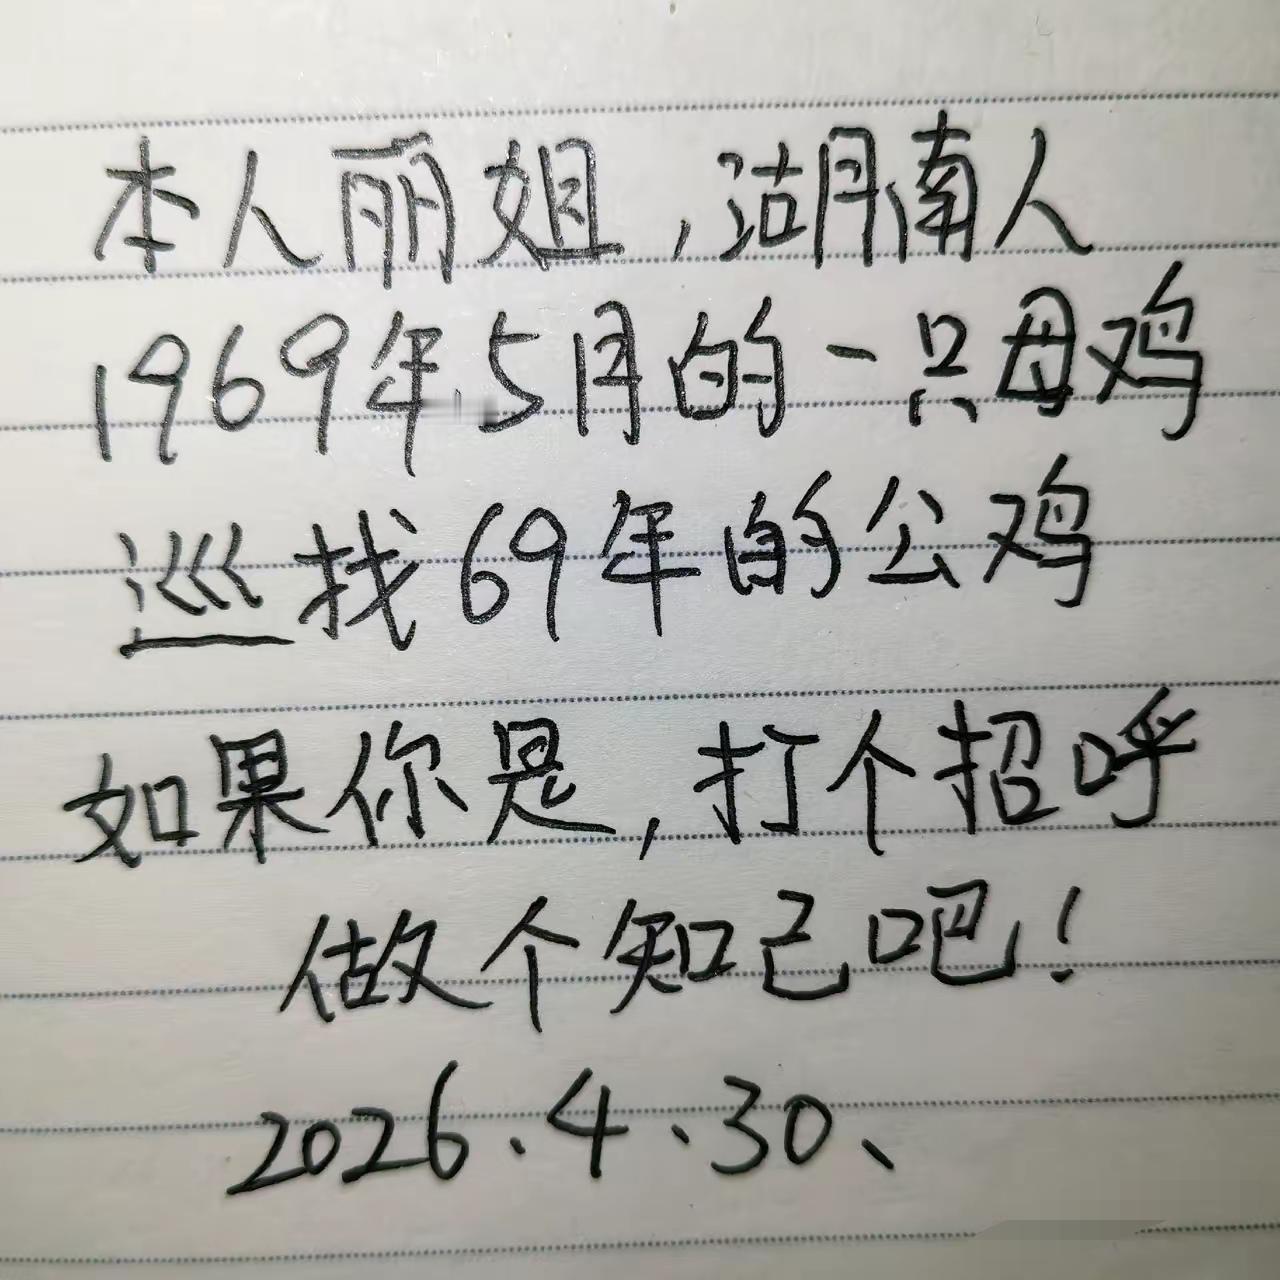 本人丽姐,湖南人
1969年5月的一只母鸡
巡找69年的公鸡
如果你是,打个招呼
做个知己吧!
2026、4、30、